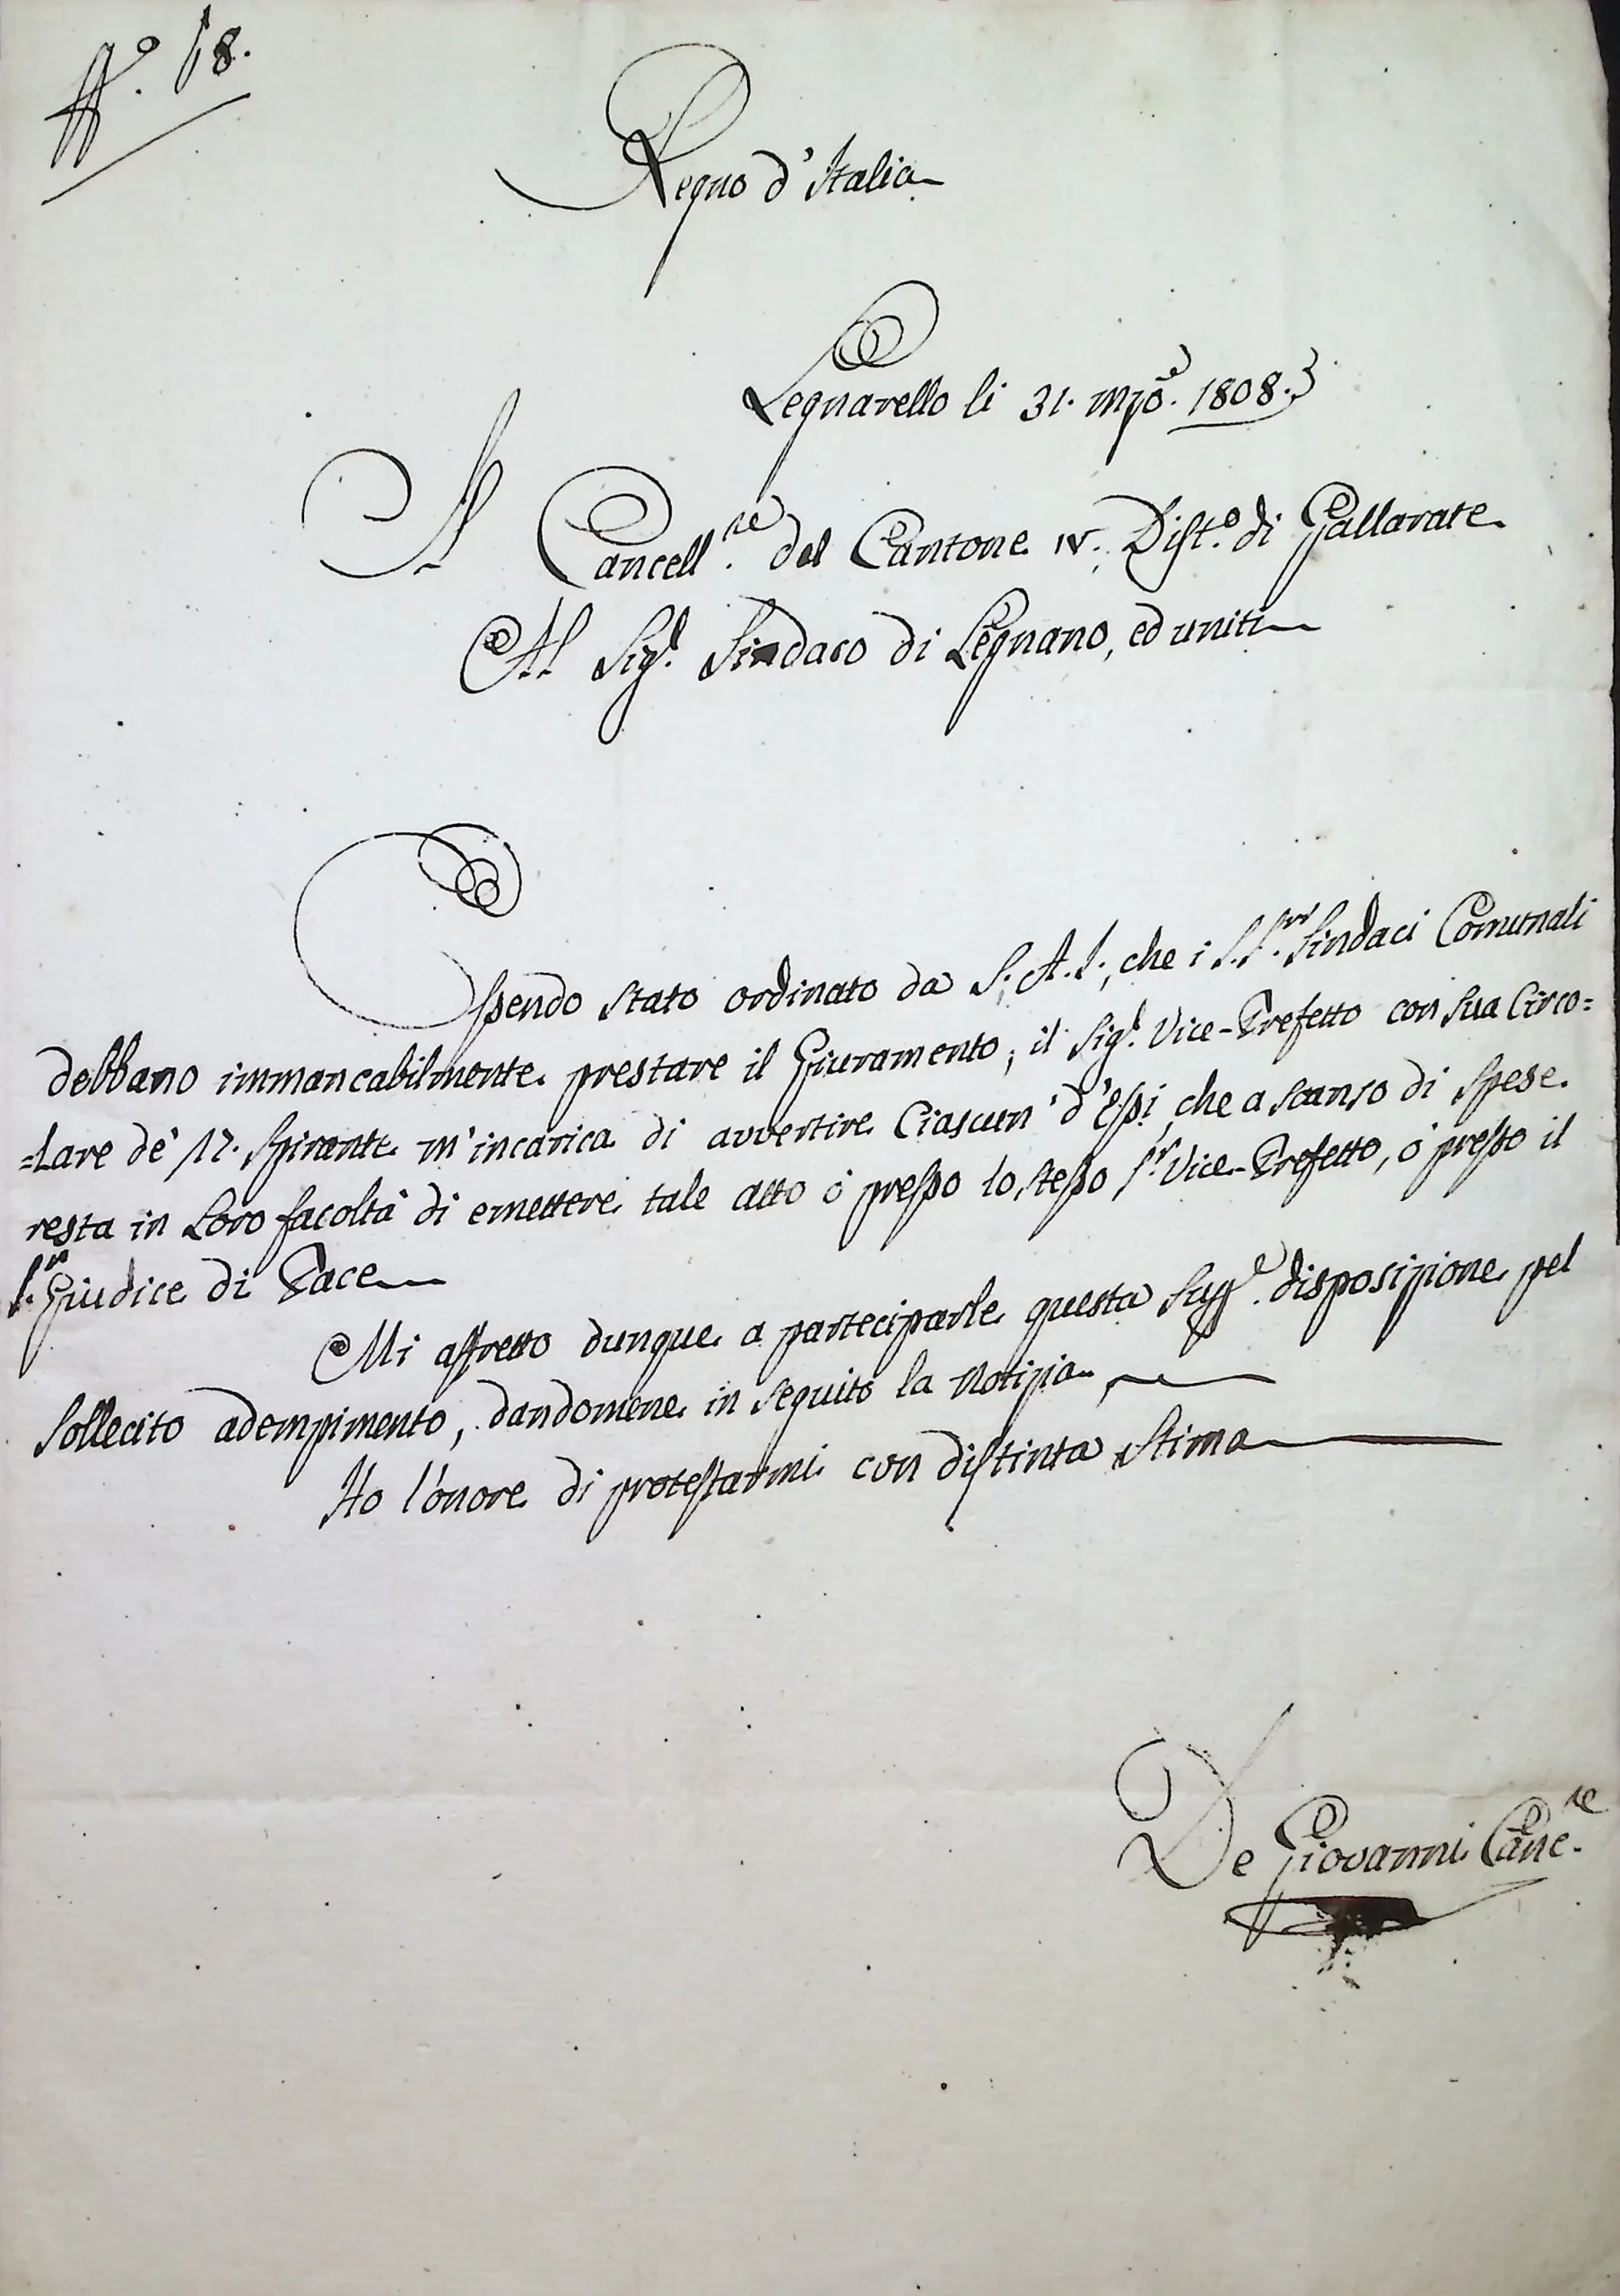 N.º 18.
Regno d'Italia
Legnarello li 31. mzo. 1808.
Il Cancell.re del Cantone IV. Dist.o di Gallarate
Al Sig.r Sindaco di Legnano, ed uniti
Essendo stato ordinato da S. A. I., che i S.S.ri Sindaci Comunali
debbano immancabilmente prestare il Giuramento, il Sig.r Vice-Prefetto con sua Circo=
=lare de' 12. Spirante m'incarica di avvertire Ciascun' d'Essi, che a scanso di Spese
resta in Loro facoltà di emettere tale atto ò presso lo stesso S.r Vice-Prefetto, ò presso il
S.r Giudice di Pace
Mi affretto dunque a parteciparle questa Sup.e disposizione pel
Sollecito adempimento, dandomene in seguito la Notizia
Ho l'onore di protestarmi con distinta Stima
De Giovanni Canc.re